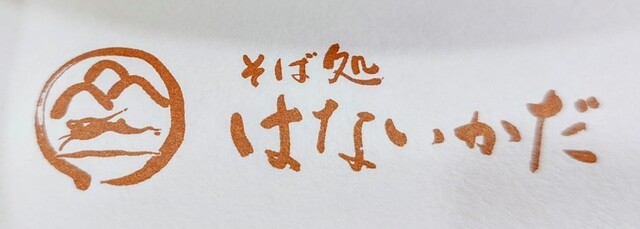 そば処
はないかだ